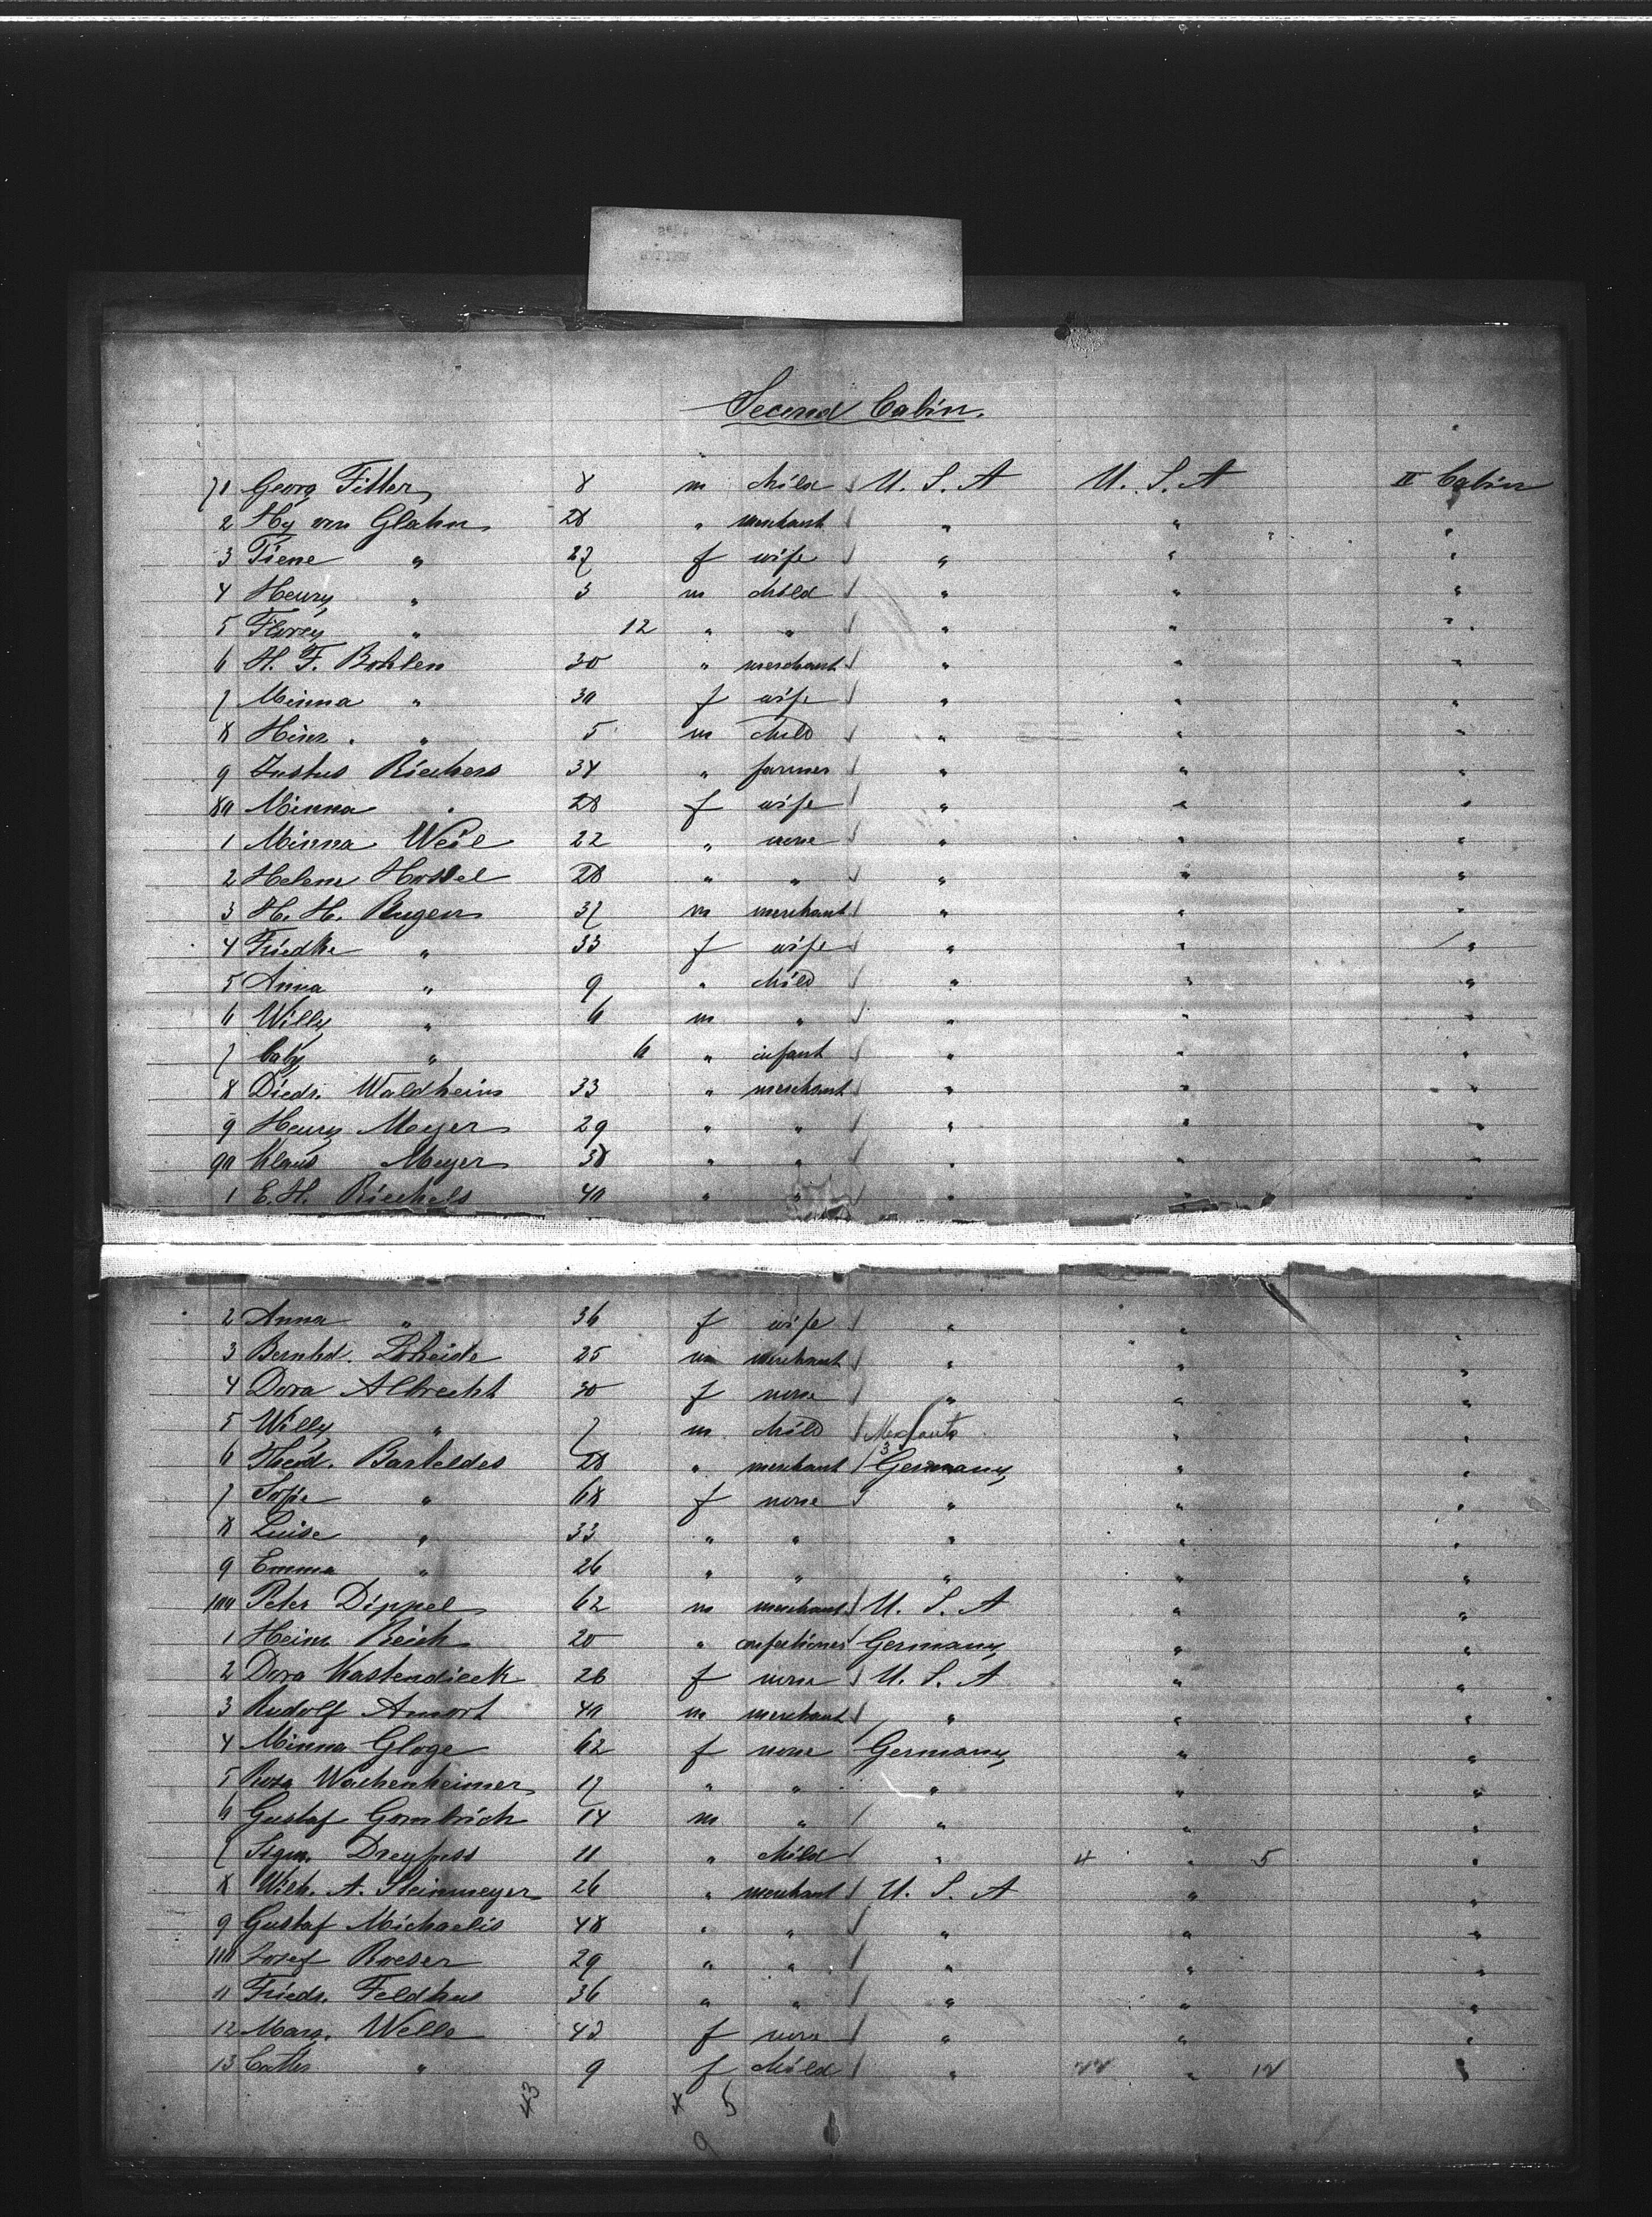 Second Cabin.
71 Georg Fitter 8 m child U. S. A U. S. A II Cabin
2 Hy von Glahn 28 " merchant " " "
3 Tiene " 27 f wife " " "
4 Henry " 3 m child " " "
5 Florey " 12 " " " " "
6 H. F. Bohlen 30 " merchant " " "
7 Minna " 30 f wife " " "
8 Hinr. " 5 m child " " "
9 Justus Riechers 34 " farmer " " "
80 Minna " 28 f wife " " "
1 Minna Weil 22 " none " " "
2 Helene 28 " " " " "
3 H. H. Rugen 37 m merchant " " "
4 Friedke " 33 f wife " " "
5 Anna " 9 " child " " "
6 Willy " 6 m " " " "
7 baby " 6 " infant " " "
8 Diedr. Waldheim 33 " merchant " " "
9 Henry Meyer 29 " " " " "
90 Klaus Meyer 38 " " " " "
1 E. H. Riechels 40 " " " " "
2 Anna " 36 f wife " " "
3 Bernhd. Loheide 25 m merchant " " "
4 Dora Albrecht 30 f none " " "
5 Willy " 7 m child " "
6 Theod. Barteldes 28 " merchant Germany " "
7 Sofie " 68 f none " " "
8 Luise " 33 " " " " "
9 Emma " 26 " " " " "
100 Peter Dippel 62 m merchant U. S. A " "
1 Heinr. Reich 20 " confectioner Germany " "
2 Dora Kastendieck 26 f none U. S. A " "
3 Rudolf Amort 40 m merchant " " "
4 Minna Gloge 62 f none Germany " "
5 Roza Wachenheimer 17 " " " " "
6 Gustaf Gombrich 14 m " " " "
7 Sigm. Dreyfuss 11 " child " 4 " 5 "
8 Wilh. A. Steinmeyer 26 " merchant U. S. A " "
9 Gustaf Michaelis 48 " " " " "
110 Josef Roeser 29 " " " " "
11 Friedr. Feldhus 36 " " " " "
12 Marg. Welle 43 f none " " "
13 Cathr " 9 f child " 22 " 12 "
43 4 5
9